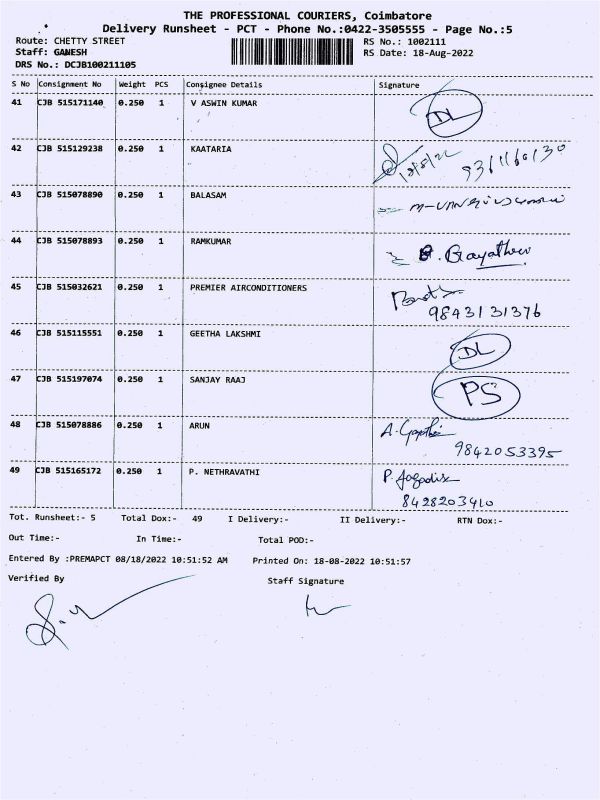 THE PROFESSIONAL COURIERS, Coimbatore
Delivery Runsheet - PCT - Phone No.:0422-3505555 - Page No.:5
Route: CHETTY STREET RS No.: 1002111
Staff: GANESH RS Date: 18-Aug-2022
DRS No.: DCJB100211105
S No Consignment No Weight PCS Consignee Details Signature
41 CJB 515171140 0.250 1 V ASWIN KUMAR DL
42 CJB 515129238 0.250 1 KAATARIA 18/8/22 9361160130
43 CJB 515078890 0.250 1 BALASAM
44 CJB 515078893 0.250 1 RAMKUMAR Gayathri
45 CJB 515032621 0.250 1 PREMIER AIRCONDITIONERS
9843131376
46 CJB 515115551 0.250 1 GEETHA LAKSHMI DL
47 CJB 515197074 0.250 1 SANJAY RAAJ PS
48 CJB 515078886 0.250 1 ARUN A.
9842053395
49 CJB 515165172 0.250 1 P. NETHRAVATHI P. Jagadis
8428203410
Tot. Runsheet:- 5 Total Dox:- 49 I Delivery:- II Delivery:- RTN Dox:-
Out Time:- In Time:- Total POD:-
Entered By :PREMAPCT 08/18/2022 10:51:52 AM Printed On: 18-08-2022 10:51:57
Verified By Staff Signature